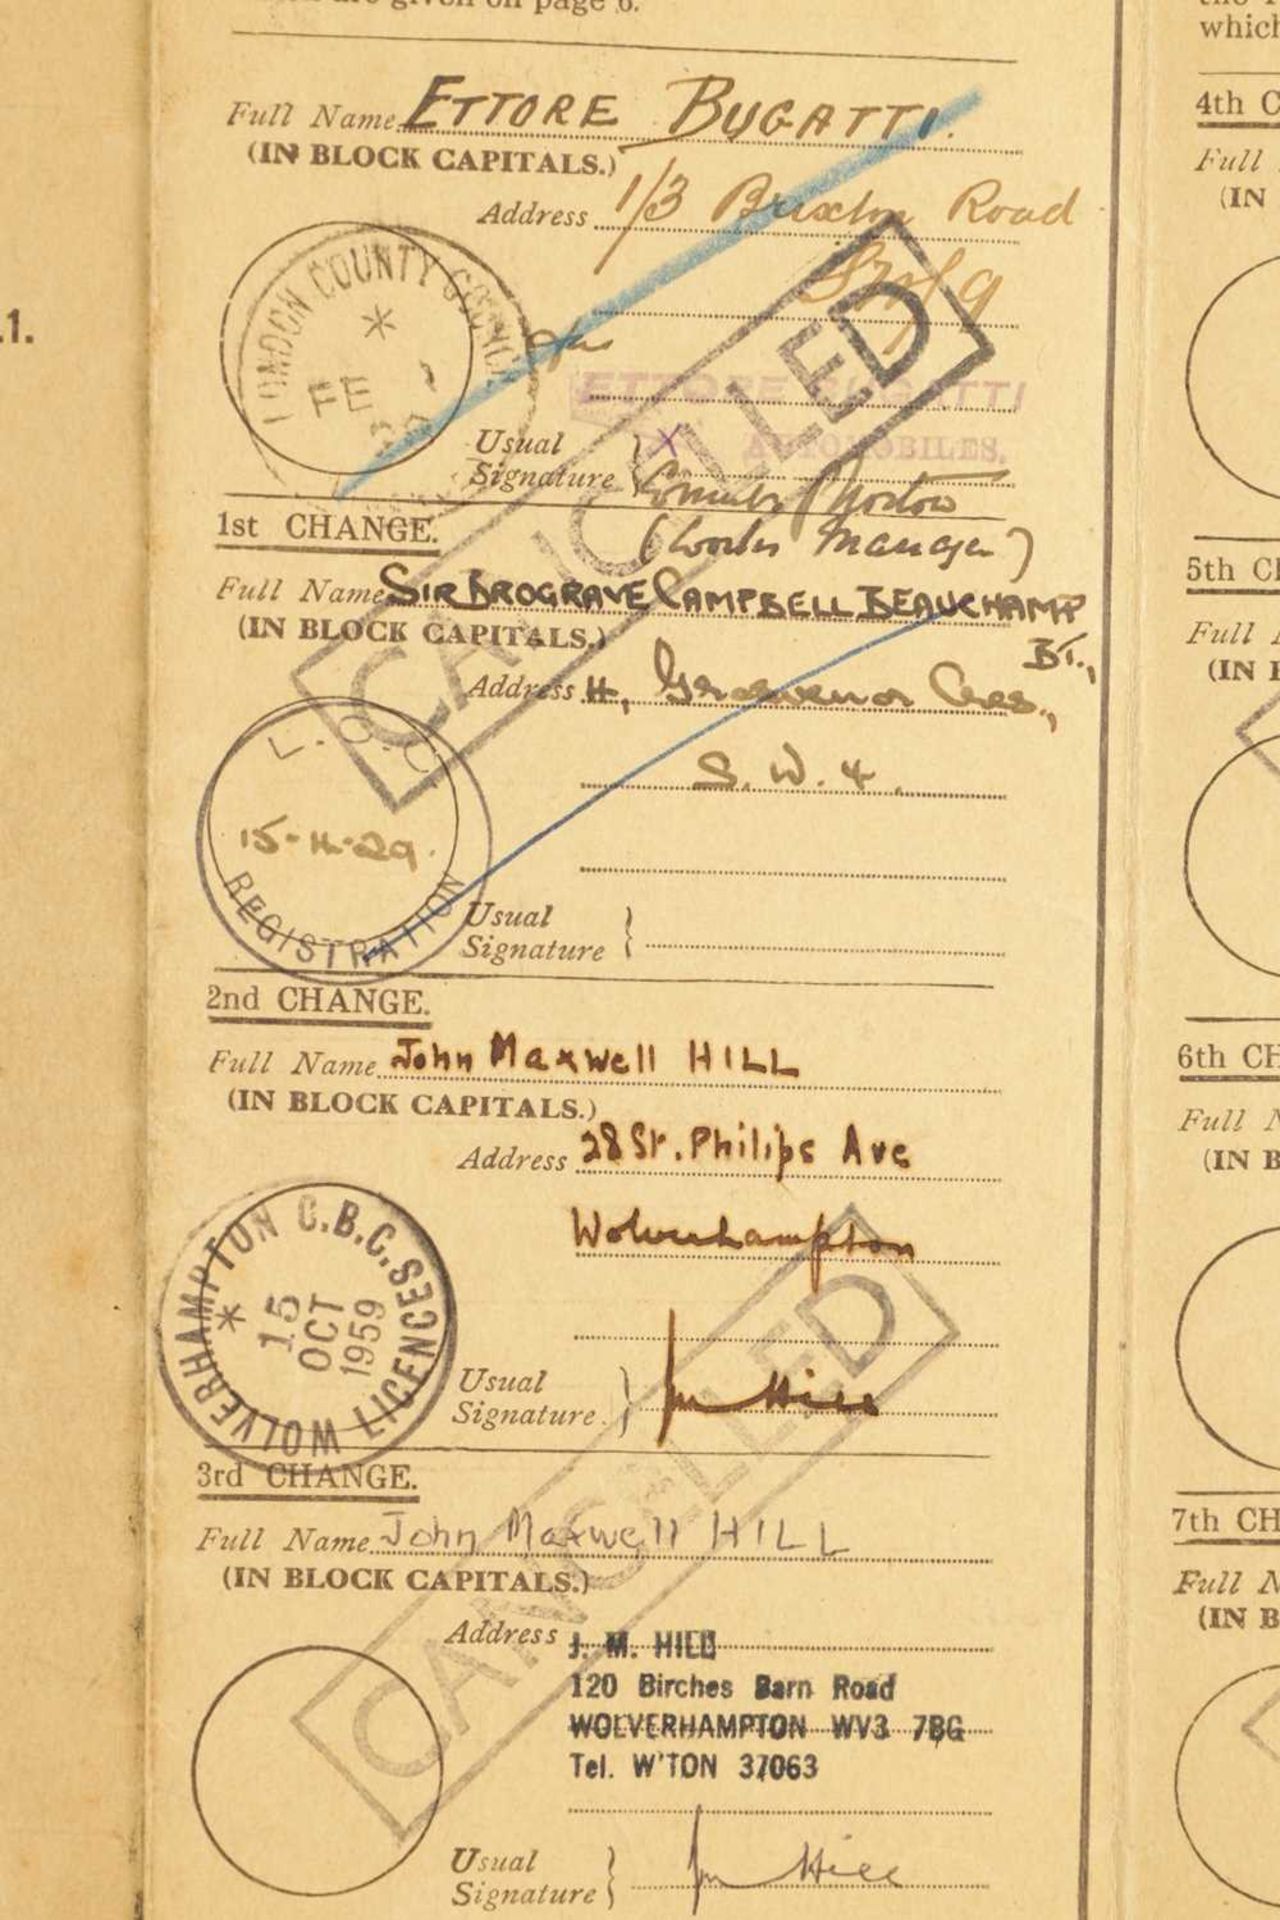 are given on page 6.
Full Name ETTORE BUGATTI.
(IN BLOCK CAPITALS.)
Address 1/3 Brixton Road
LONDON COUNTY COUNCIL
FE
ETTORE BUGATTI
AUTOMOBILES.
Usual
Signature
X
(Works Manager)
CANCELLED
1st CHANGE.
Full Name SIR BROGRAVE CAMPBELL BEAUCHAMP
(IN BLOCK CAPITALS.)
BT.,
Address 4, Grosvenor Cres.,
S. W. 4.
L.C.C.
15-11-29.
REGISTRATION
Usual
Signature
2nd CHANGE.
Full Name John Maxwell HILL
(IN BLOCK CAPITALS.)
Address 28 St. Philips Ave
Wolverhampton
WOLVERHAMPTON C.B.C. LICENCES
15
OCT
1959
Usual
Signature
Jm Hill
CANCELLED
3rd CHANGE.
Full Name John Maxwell HILL
(IN BLOCK CAPITALS.)
Address J. M. HILL
120 Birches Barn Road
WOLVERHAMPTON WV3 7BG
Tel. W'TON 37063
Usual
Signature
Jm Hill
.1.
which
4th C
Full
(IN
5th C
Full
(IN B
6th CH
Full N
(IN B
7th CH
Full N
(IN B